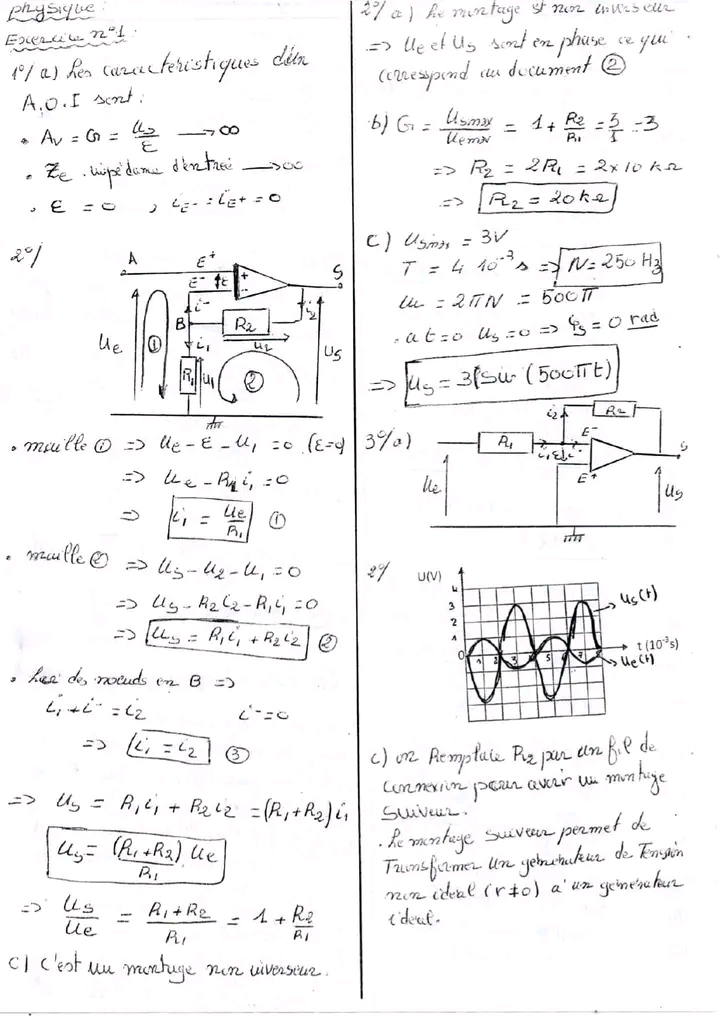 physique
Exercice n°1:
1°/ a) Les caractéristiques d'un
A.O.I sont:
• Av = G = Us/ε → ∞
• Ze impédance d'entrée → ∞
• ε = 0 , iE- = iE+ = 0
2°/
A
E+
E-
ε
S
i-
B
R2
i2
u2
i1
Ue
①
R1
u1
②
Us
• maille ① => Ue - ε - U1 = 0 (ε=0)
=> Ue - R1 i1 = 0
=> i1 = Ue/R1 ①
• maille ② => Us - U2 - U1 = 0
=> Us - R2 i2 - R1 i1 = 0
=> Us = R1 i1 + R2 i2 ②
• Loi des noeuds en B =>
i1 + i- = i2 i- = 0
=> i1 = i2 ③
=> Us = R1 i1 + R2 i2 = (R1 + R2) i1
Us = (R1+R2) Ue / R1
=> Us/Ue = (R1+R2)/R1 = 1 + R2/R1
C) C'est un montage non inverseur.
2°/ a) Le montage st non inverseur
=> Ue et Us sont en phase ce qui
correspond au document ②
b) G = Usmax/Uemax = 1 + R2/R1 = 3/1 = 3
=> R2 = 2R1 = 2 x 10 kΩ
=> R2 = 20 kΩ
C) Usmax = 3V
T = 4 10^-3 s => N = 250 Hz
w = 2πN = 500π
. a t=0 us=0 => φs = 0 rad
=> Us = 3 Sin (500πt)
3°/a)
i2
R2
R1
E-
i1
ε
i-
S
E+
Ue
Us
2°/
U(V)
4
3
2
1
0
1 2 3 4 5 6 7 8
Us(t)
t (10^-3s)
Ue(t)
c) on Remplace R2 par un fil de
connexion pour avoir un montage
suiveur.
. Le montage suiveur permet de
Transformer un générateur de Tension
non idéal (r≠0) a' un générateur
idéal.